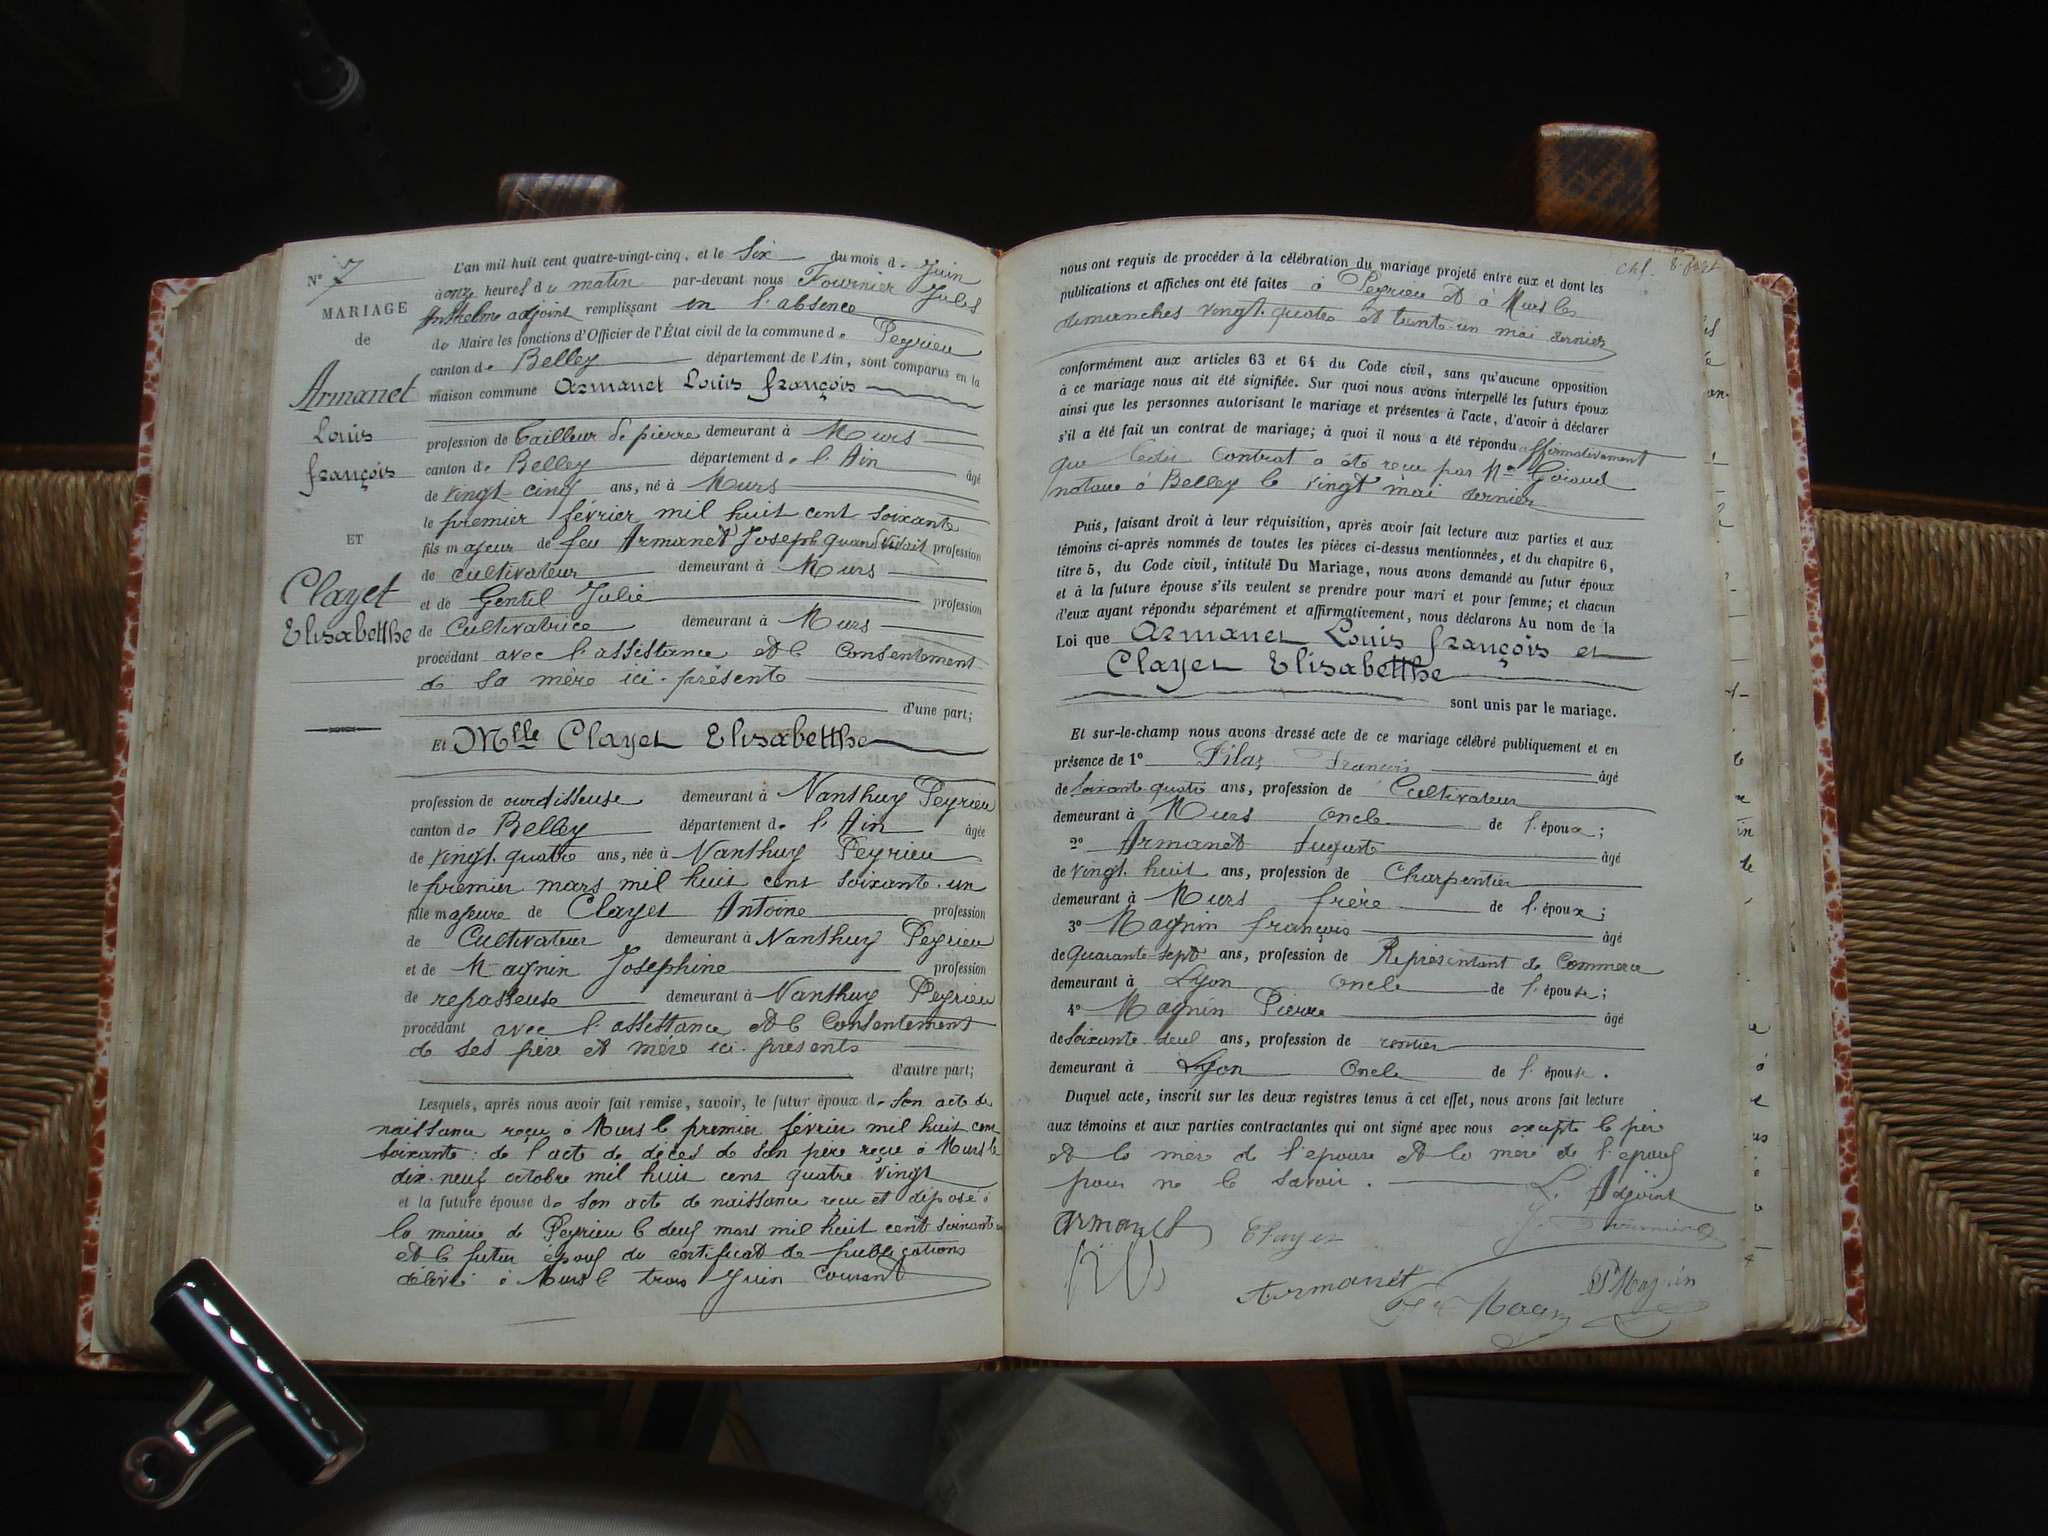 N° 7
MARIAGE
de
Armanet
Louis
françois
ET
Clayet
Elisabetthe
L'an mil huit cent quatre-vingt-cinq, et le Six du mois de Juin
à onze heures du matin par-devant nous Fournier Jules
Anthelme adjoint remplissant en l'absence
de Maire les fonctions d'Officier de l'État civil de la commune de Peyrieu
canton de Belley département de l'Ain, sont comparus en la
maison commune Armanet Louis françois
profession de tailleur de pierre demeurant à Murs
canton de Belley département de l'Ain âgé
de vingt-cinq ans, né à Murs
le premier février mil huit cent soixante
fils majeur de feu Armanet Joseph quand vivait profession
de cultivateur demeurant à Murs
et de Gentil Julie profession
de Cultivatrice demeurant à Murs
procédant avec l'assistance et le Consentement
de sa mère ici présente
d'une part;
Et Mlle Clayet Elisabetthe
profession de ourdisseuse demeurant à Nanthuy Peyrieu
canton de Belley département de l'Ain âgée
de vingt-quatre ans, née à Nanthuy Peyrieu
le premier mars mil huit cent soixante-un
fille majeure de Clayet Antoine profession
de Cultivateur demeurant à Nanthuy Peyrieu
et de Magnin Josephine profession
de repasseuse demeurant à Nanthuy Peyrieu
procédant avec l'assistance et le Consentement
de ses père et mère ici présents
d'autre part;
Lesquels, après nous avoir fait remise, savoir, le futur époux de son acte de
naissance reçu à Murs le premier février mil huit cent
soixante: de l'acte de décès de son père reçu à Murs le
dix-neuf octobre mil huit cent quatre vingt
et la future épouse de son acte de naissance reçu et déposé à
la mairie de Peyrieu le deux mars mil huit cent soixante un
et le futur époux du certificat de publications
délivré à Murs le trois Juin Courant
nous ont requis de procéder à la célébration du mariage projeté entre eux et dont les
publications et affiches ont été faites à Peyrieu et à Murs les
dimanches vingt-quatre et trente-un mai dernier
conformément aux articles 63 et 64 du Code civil, sans qu'aucune opposition
à ce mariage nous ait été signifiée. Sur quoi nous avons interpellé les futurs époux
ainsi que les personnes autorisant le mariage et présentes à l'acte, d'avoir à déclarer
s'il a été fait un contrat de mariage; à quoi il nous a été répondu affirmativement
que ledit Contrat a été reçu par Me
notaire à Belley le vingt mai dernier
Puis, faisant droit à leur réquisition, après avoir fait lecture aux parties et aux
témoins ci-après nommés de toutes les pièces ci-dessus mentionnées, et du chapitre 6,
titre 5, du Code civil, intitulé Du Mariage, nous avons demandé au futur époux
et à la future épouse s'ils veulent se prendre pour mari et pour femme; et chacun
d'eux ayant répondu séparément et affirmativement, nous déclarons Au nom de la
Loi que Armanet Louis françois et
Clayet Elisabetthe
sont unis par le mariage.
Et sur-le-champ nous avons dressé acte de ce mariage célébré publiquement et en
présence de 1° Pilaz François âgé
de soixante quatre ans, profession de Cultivateur
demeurant à Murs oncle de l'époux;
2° Armanet Auguste âgé
de vingt-huit ans, profession de Charpentier
demeurant à Murs frère de l'époux;
3° Magnin françois âgé
de Quarante-sept ans, profession de Représentant de Commerce
demeurant à Lyon oncle de l'épouse;
4° Magnin Pierre âgé
de soixante deux ans, profession de rentier
demeurant à Lyon Oncle de l'épouse.
Duquel acte, inscrit sur les deux registres tenus à cet effet, nous avons fait lecture
aux témoins et aux parties contractantes qui ont signé avec nous excepté le père
et la mère de l'épouse et la mère de l'époux
pour ne le savoir.
L'Adjoint
Armanet Clayet J. Fournier
Armanet Magnin P Magnin